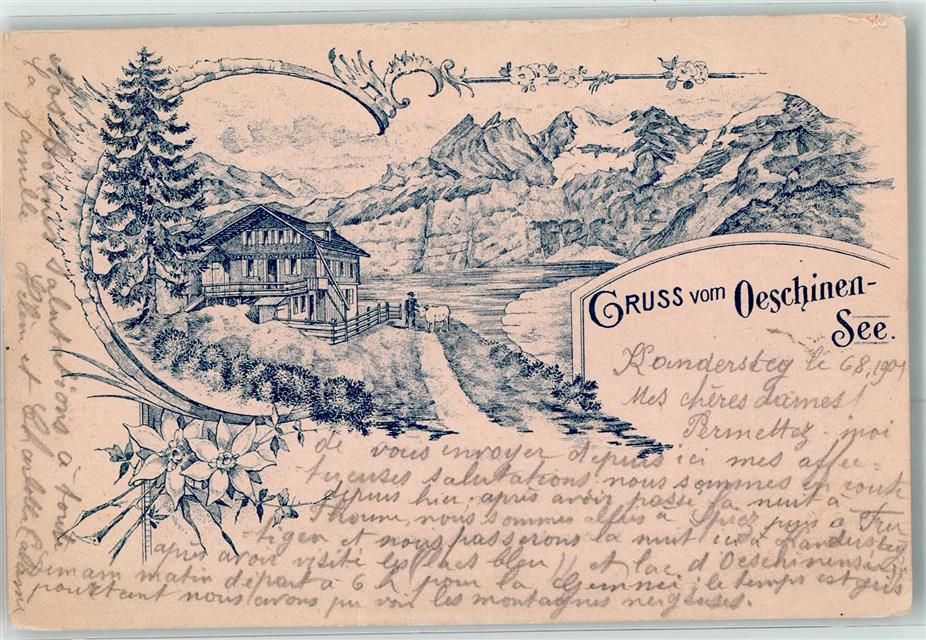 GRUSS vom Oeschinen-
See.
Kandersteg le 6 8, 1901
Mes chères dames!
Permettez-moi
de vous envoyer depuis ici mes affec-
tueuses salutations nous sommes en route
depuis hier, après avoir passé la nuit à
Thoune, nous sommes allés à Spiez puis à Fru-
tigen et nous passerons la nuit ici à Kandersteg
après avoir visité les (lacs bleu) et lac d'Oeschinensee
Demain matin départ à 6 h pour la Gemmi; le temps est gris
pourtant nous avons pu voir les montagnes neigeuses.
salutations à toute
la famille Hélène et Charlotte